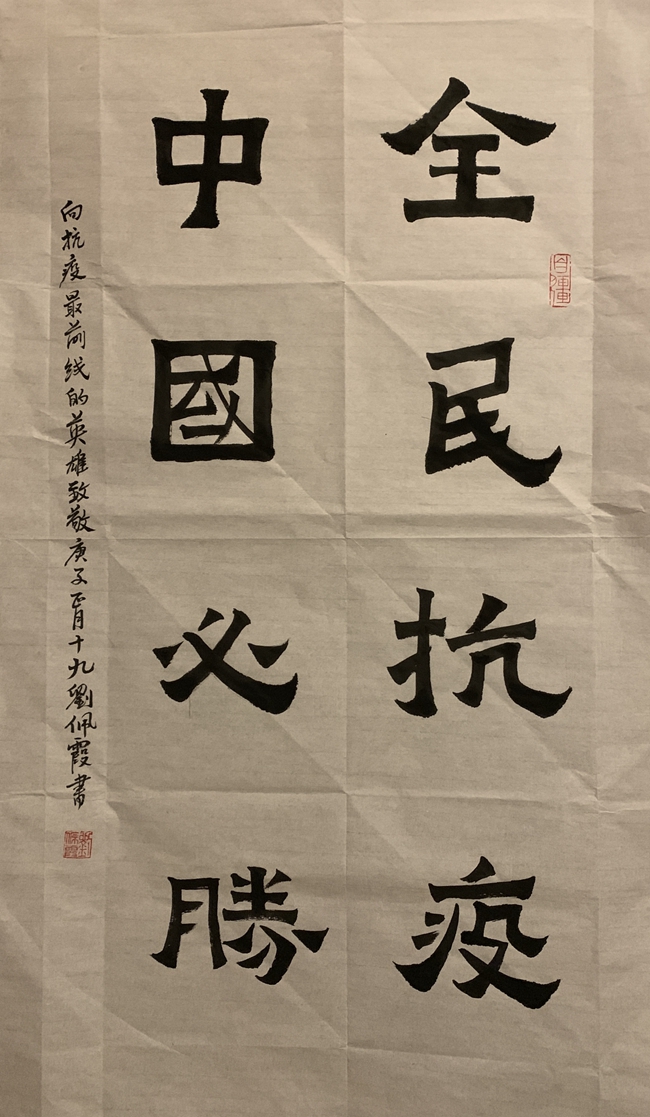 全民抗疫
中國必勝
向抗疫最前线的英雄致敬庚子正月十九劉佩霞書